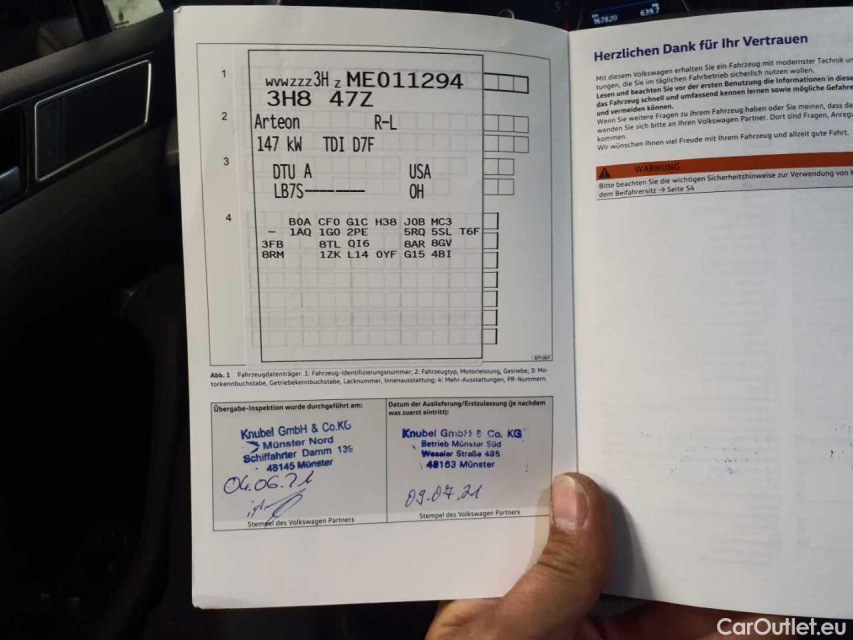 167820 639.7
1 WVWZZZ3H Z ME011294
3H8 47Z
2 Arteon R-L
147 kW TDI D7F
3 DTU A USA
LB7S------- OH
4 B0A CF0 G1C H38 J0B MC3
- 1AQ 1G0 2PE 5RQ 5SL T6F
3FB 8TL QI6 8AR 8GV
8RM 1ZK L14 0YF G15 4BI
Abb. 1 Fahrzeugdatenträger. 1: Fahrzeug-Identifizierungsnummer; 2: Fahrzeugtyp, Motorleistung, Getriebe; 3: Mo-
torkennbuchstabe, Getriebekennbuchstabe, Lacknummer, Innenausstattung; 4: Mehr-Ausstattungen, PR-Nummern.
Übergabe-Inspektion wurde durchgeführt am:
Knubel GmbH & Co.KG
Münster Nord
Schiffahrter Damm 139
48145 Münster
04.06.21
Stempel des Volkswagen Partners
Datum der Auslieferung/Erstzulassung (je nachdem
was zuerst eintritt):
Knubel GmbH & Co. KG
Betrieb Münster Süd
Weseler Straße 485
48163 Münster
09.07.21
Stempel des Volkswagen Partners
Herzlichen Dank für Ihr Vertrauen
Mit diesem Volkswagen erhalten Sie ein Fahrzeug mit modernster Technik
tungen, die Sie im täglichen Fahrbetrieb sicherlich nutzen wollen.
Lesen und beachten Sie vor der ersten Benutzung die Informationen in
das Fahrzeug schnell und umfassend kennen lernen sowie mögliche
und vermeiden können.
Wenn Sie weitere Fragen zu Ihrem Fahrzeug haben oder Sie meinen, dass
wenden Sie sich bitte an Ihren Volkswagen Partner. Dort sind Fragen,
kommen.
Wir wünschen Ihnen viel Freude mit Ihrem Fahrzeug und allzeit gute Fahrt.
WARNUNG
Bitte beachten Sie die wichtigen Sicherheitshinweise zur Verwendung von
dem Beifahrersitz → Seite 54
CarOutlet.eu